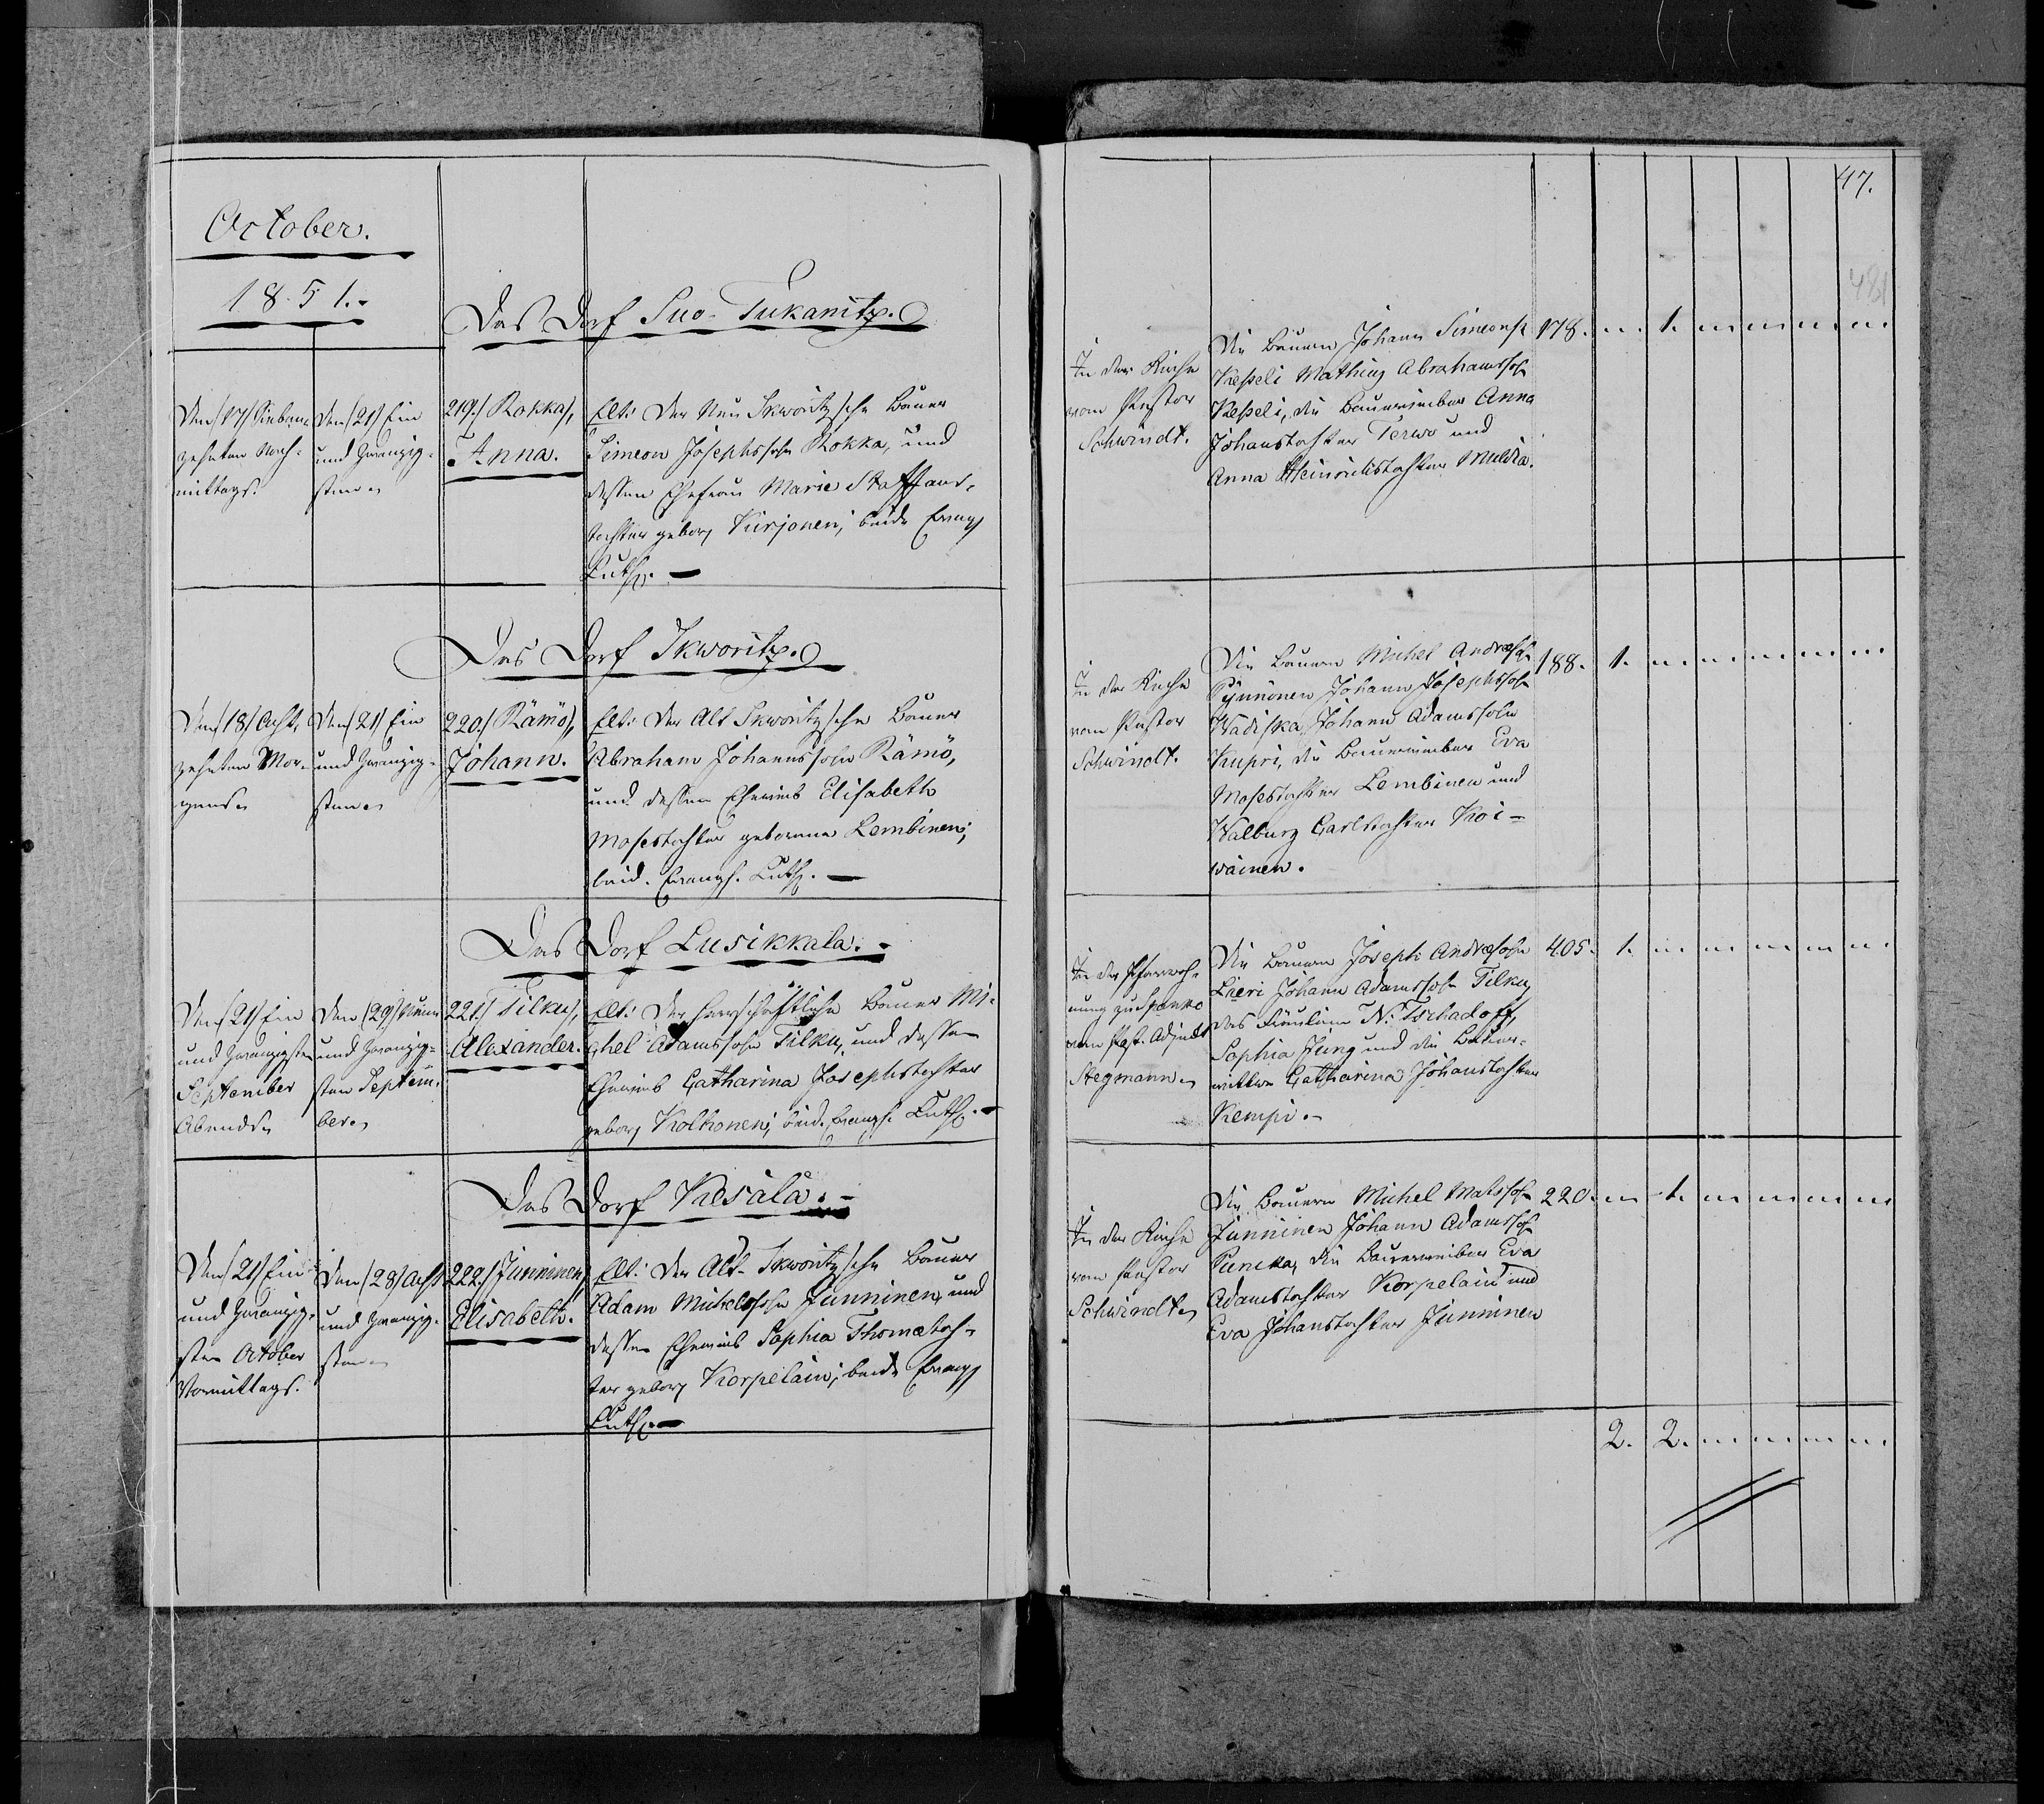 October.
1851.-
Das Dorf Suo-Tukanitz.
Den (17) Sieben-
zehnten Nach-
mittags.
Den (21) Ein
und Zwanzig-
sten.
219.) Rokka,
Anna.
Elt: Der Neu Skworitzsche Bauer
Simeon Josephssohn Rokka, und
dessen Ehefrau Maria Staffans-
tochter gebor. Kurjonen; beide Evang.
Luth. —
Das Dorf Skworitz.
Den (18) Acht-
zehnten Mor-
gens.
Den (21) Ein
und Zwanzig-
sten.
220.) Rämö,
Johann.
Elt: Der Alt Skworitzsche Bauer
Abraham Johannssohn Rämö,
und dessen Eheweib Elisabeth
Mosestochter geborene Lembinen;
beid. Evangs. Luth. —
Das Dorf Lusikkala.-
Den (21) Ein
und Zwanzigsten
September
Abends.
Den (29) Neun
und Zwanzig-
sten Septem-
ber.
221.) Tilku,
Alexander.
Elt: Der herrschaftliche Bauer Mi-
chel Adamssohn Tilku, und dessen
Eheweib Catharina Josephstochter
gebor. Kolhonen; beid. Evangs. Luth. -
Das Dorf Kesälä.-
Den (21) Ein
und Zwanzig-
sten October
Vormittags.
Den (28) Acht
und Zwanzig-
sten
222.) Junninen,
Elisabeth.
Elt: Der Alt-Skworitzsche Bauer
Adam Michelssohn Junninen, und
dessen Eheweib Sophia Thomætoch-
ter gebor. Korpelain; beide Evang.
Luth. —
47.
481
In der Kirche
vom Pastor
Schwindt.
Die Bauern Johann Simeonss.
Kesseli Mathias Abrahamssoh.
Kesseli, die Bauerweiber Anna
Johanstochter Terwo und
Anna Heinrichstochter Muldia.
178. " 1. " " " "
In der Kirche
vom Pastor
Schwindt.
Die Bauern Michel Andreas.
Pynnönen Johann Josephssoh.
Wadiska, Johann Adamssohn
Kupri, die Bauerweiber Eva
Mosestochter Lembinen und
Walburg Carlstochter Koi-
wainen.
188. 1. " " " " "
In der Pfarrwoh-
nung zu Spanko
vom Past. Adjunct
Stegmann.
Die Bauern Joseph Andreassohn
Lieri Johann Adamssohn Tilku,
das Fräulein N. Tschadoff,
Sophia Jung und die Bauer-
wittwe Catharina Johanstochter
Kempi.-
405. 1. " " " " "
In der Kirche
vom Pastor
Schwindt.
Die Bauern Michel Matssoh.
Junninen Johann Adamssoh.
Puncka, die Bauerweiber Eva
Adamstochter Korpelain und
Eva Johanstochter Junninen
220. " 1. " " " "
2. 2. " " " "